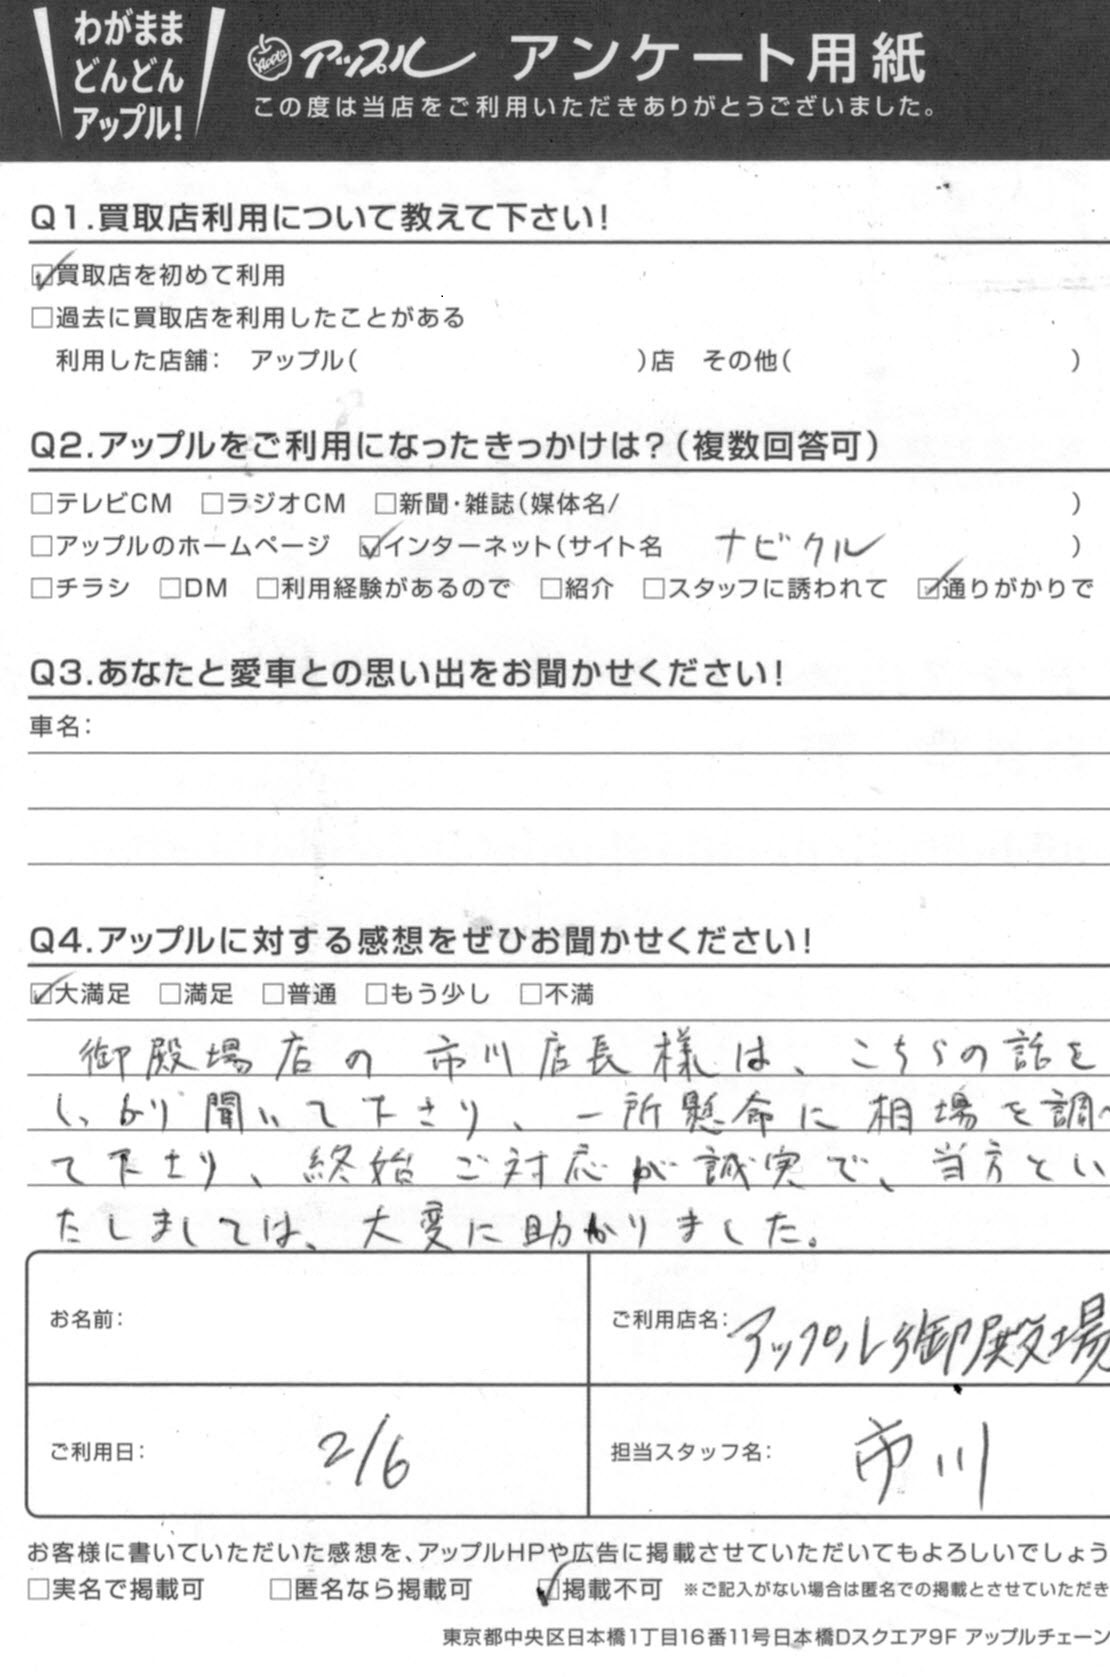 わがまま
どんどん
アップル!
Apple アップル アンケート用紙
この度は当店をご利用いただきありがとうございました。
Q1.買取店利用について教えて下さい!
☑買取店を初めて利用
□過去に買取店を利用したことがある
利用した店舗: アップル( )店 その他( )
Q2.アップルをご利用になったきっかけは?(複数回答可)
□テレビCM □ラジオCM □新聞・雑誌(媒体名/ )
□アップルのホームページ ☑インターネット(サイト名 ナビクル )
□チラシ □DM □利用経験があるので □紹介 □スタッフに誘われて ☑通りがかりで
Q3.あなたと愛車との思い出をお聞かせください!
車名:
Q4.アップルに対する感想をぜひお聞かせください!
☑大満足 □満足 □普通 □もう少し □不満
御殿場店の市川店長様は、こちらの話を
しっかり聞いて下さり、一所懸命に相場を調べ
て下さり、終始ご対応が誠実で、当方とい
たしましては、大変に助かりました。
お名前:
ご利用店名: アップル御殿場
ご利用日: 2/6
担当スタッフ名: 市川
お客様に書いていただいた感想を、アップルHPや広告に掲載させていただいてもよろしいでしょう
□実名で掲載可 □匿名なら掲載可 ☑掲載不可 ※ご記入がない場合は匿名での掲載とさせていただき
東京都中央区日本橋1丁目16番11号日本橋Dスクエア9F アップルチェーン